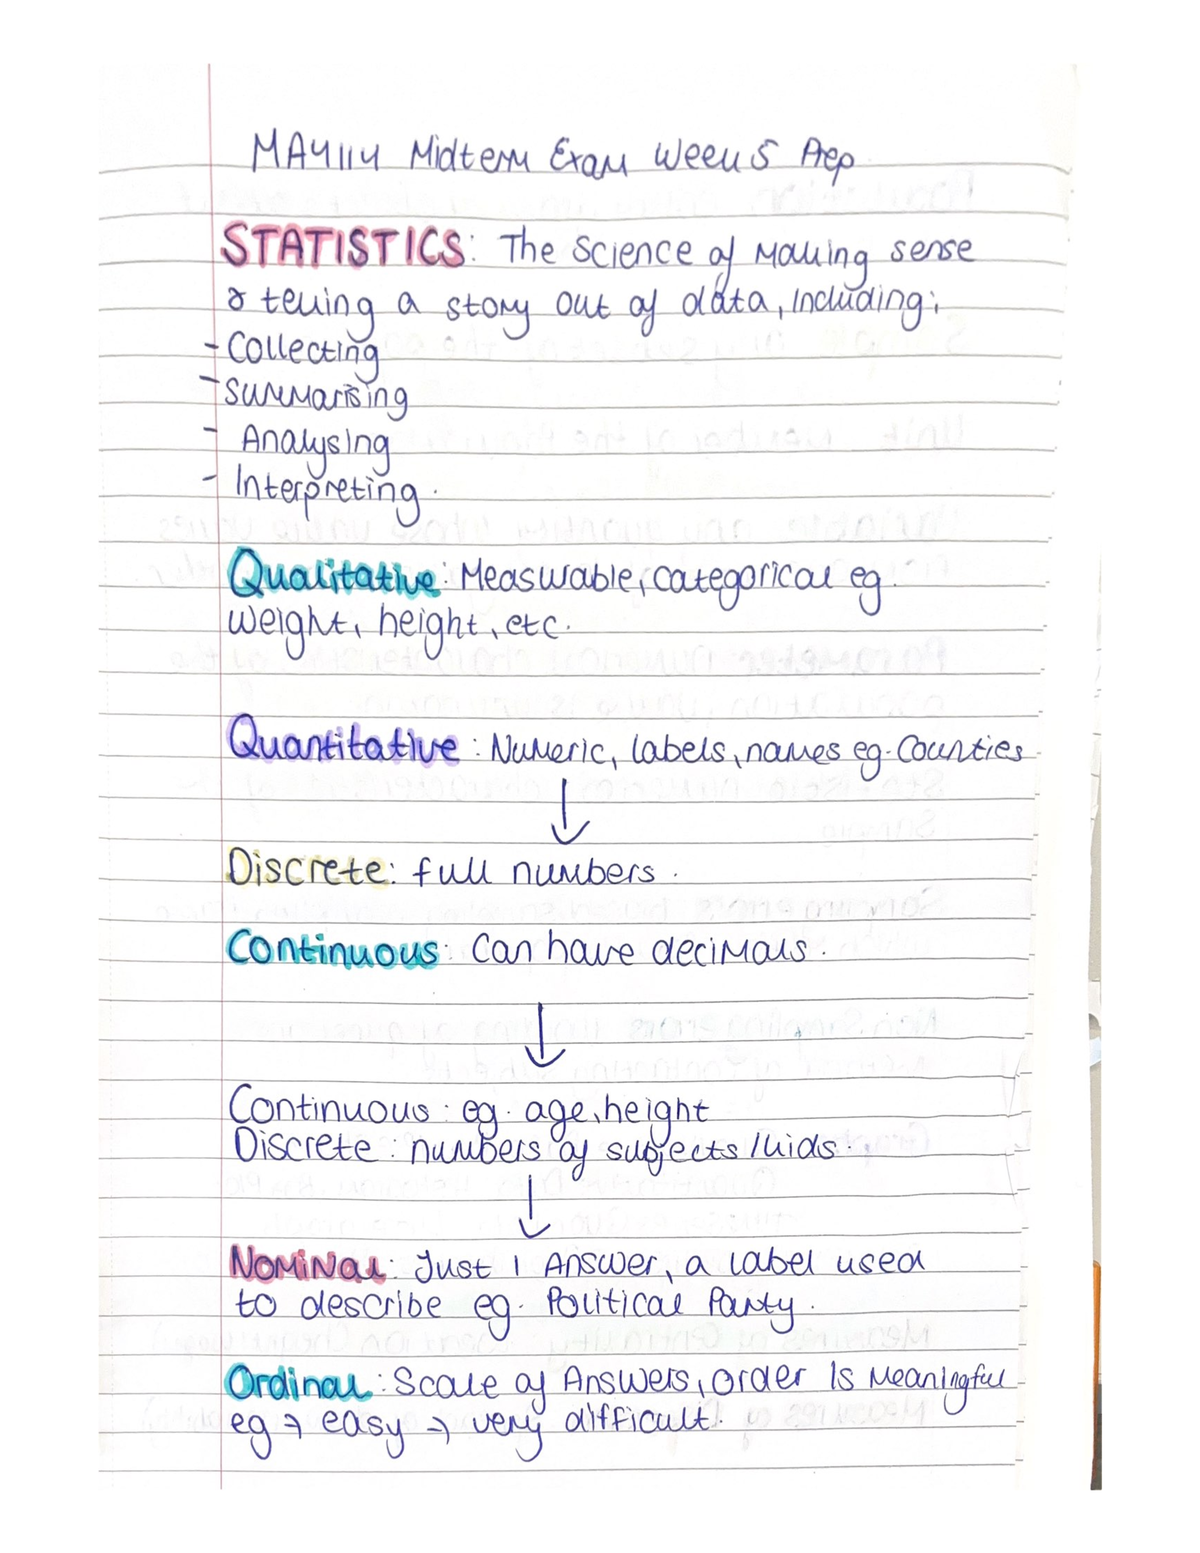 MA4114 Midterm Exam Week 5 Prep
STATISTICS: The Science of Making sense
& telling a story out of data, including;
- Collecting
- Summarising
- Analysing
- Interpreting.
Qualitative: Measurable, categorical eg.
weight, height, etc.
Quantitative: Numeric, labels, names eg. Counties
Discrete: full numbers.
Continuous: Can have decimals.
Continuous: eg. age, height
Discrete: numbers of subjects/kids.
Nominal: Just 1 Answer, a label used
to describe eg. Political Party.
Ordinal: Scale of Answers, order is meaningful
eg → easy → very difficult.